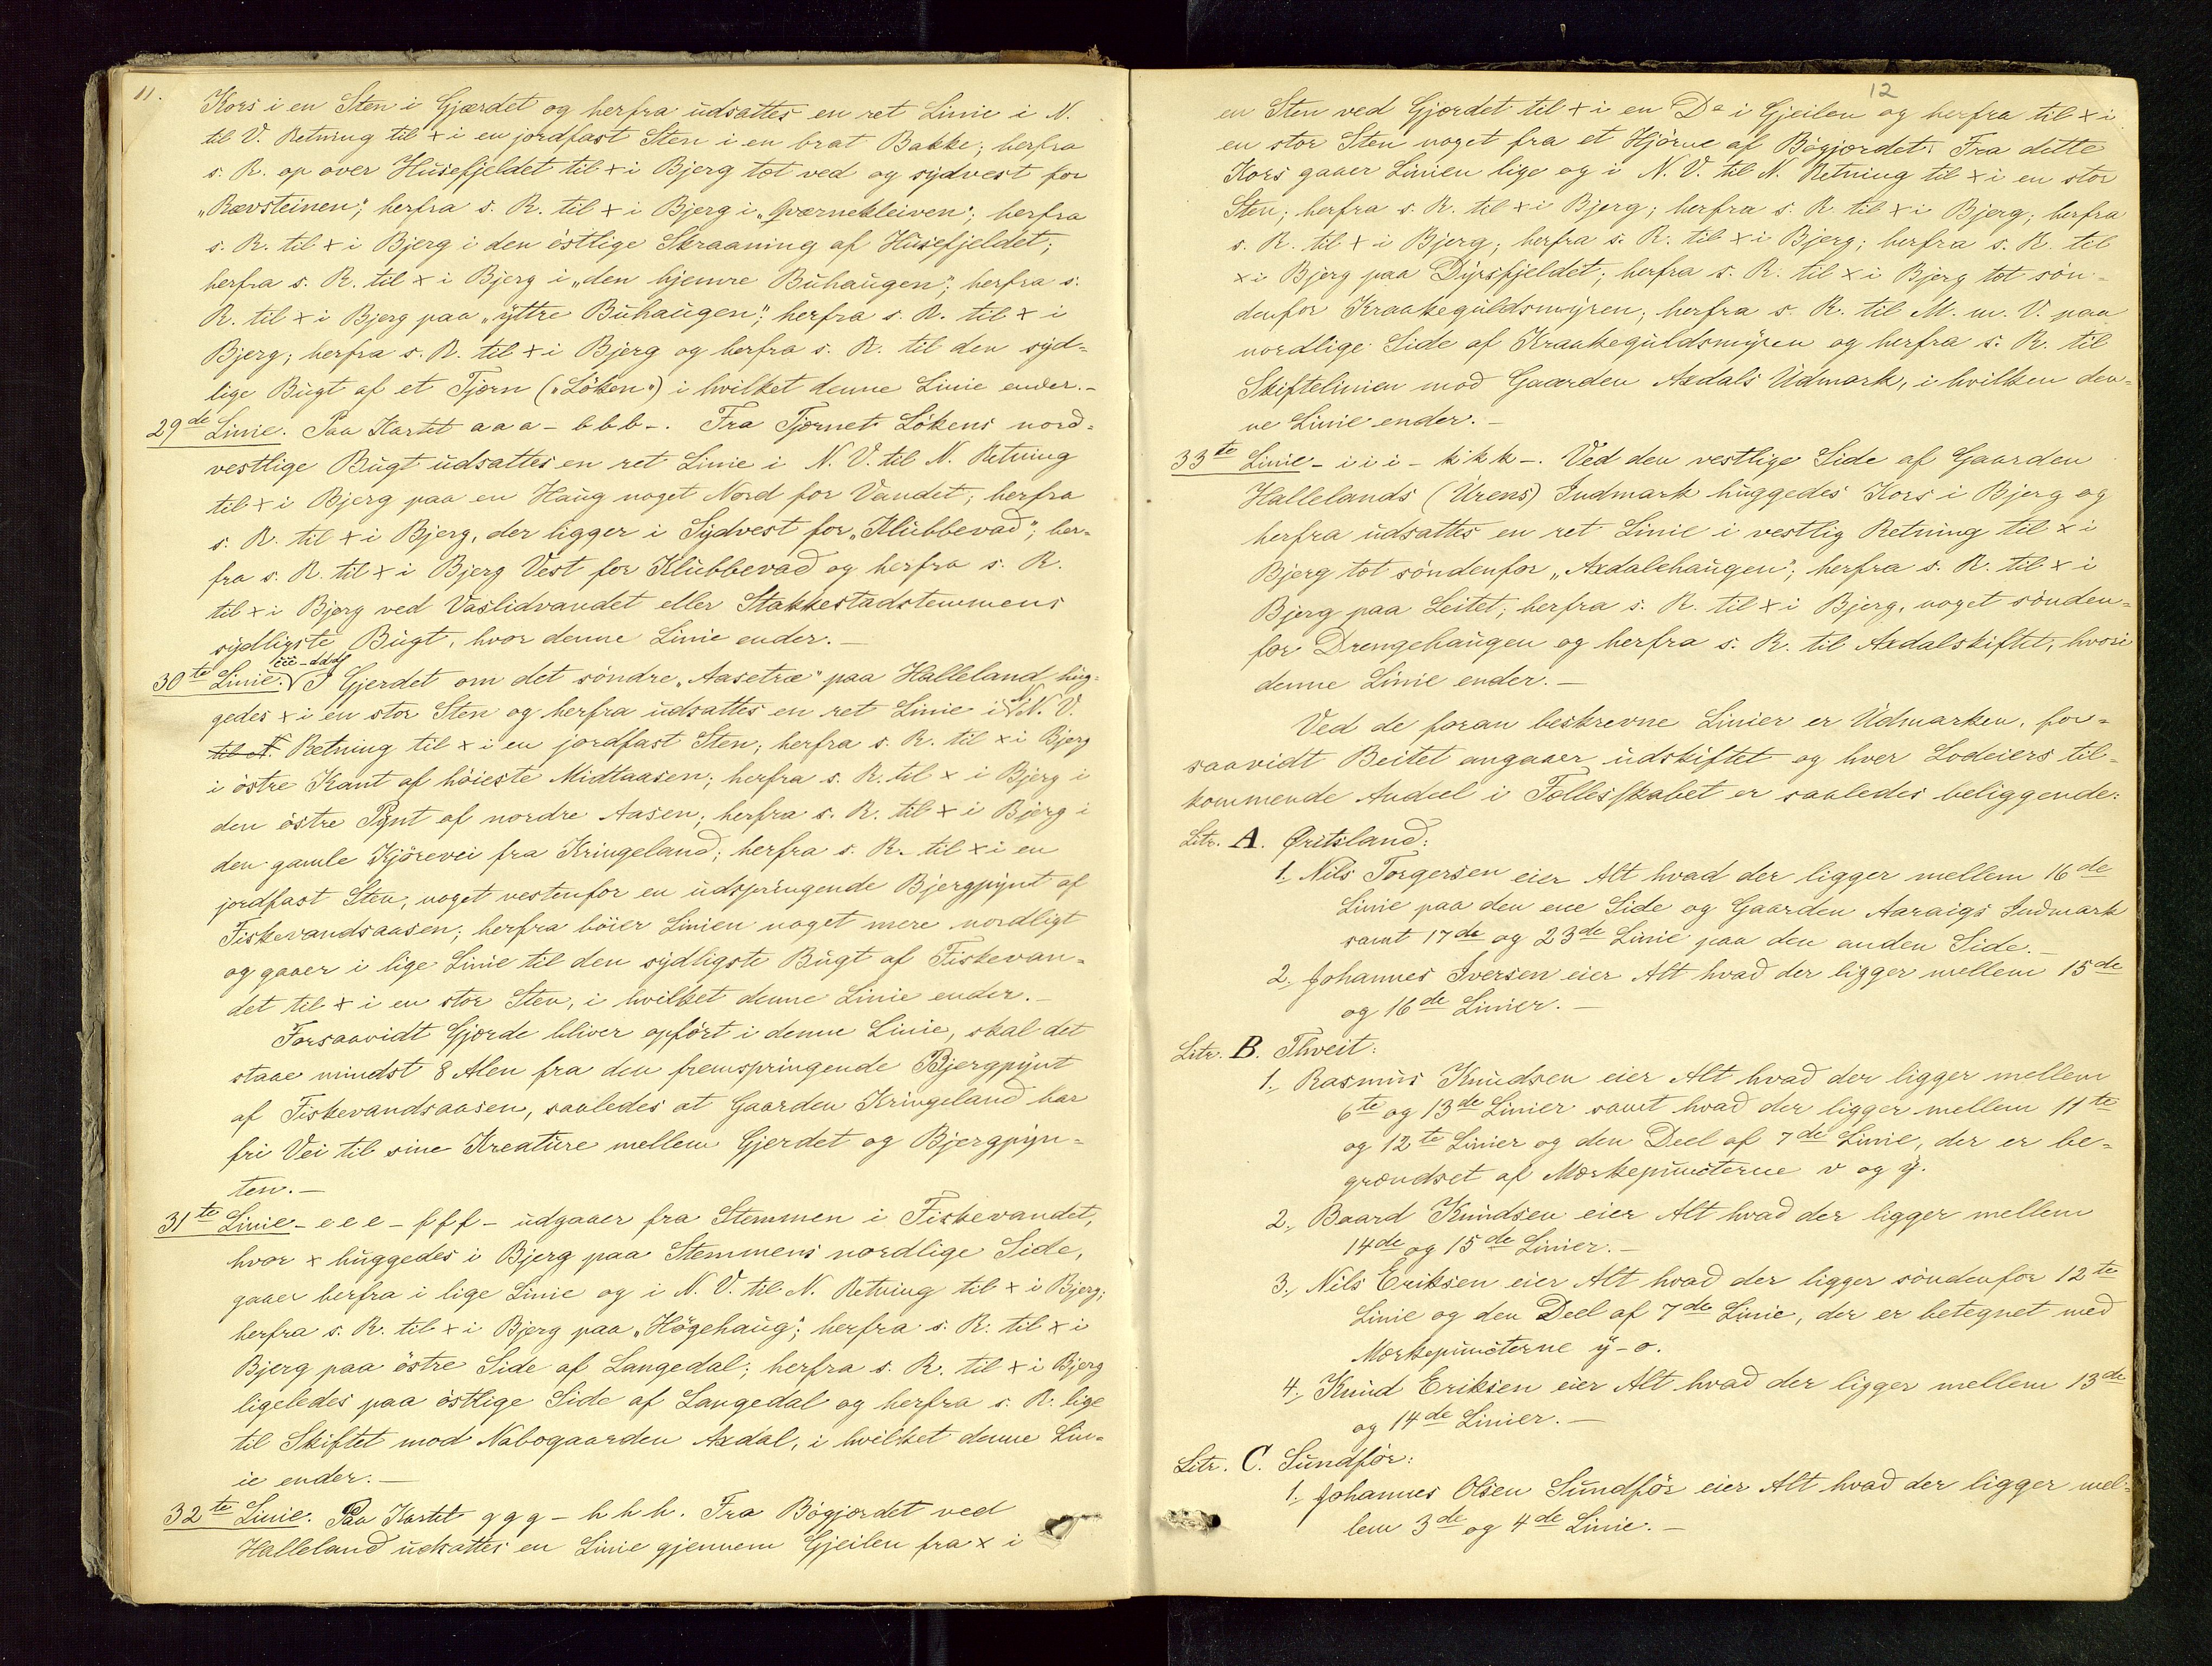 11.
Kors i en Sten i Gjærdet og herfra udsattes en ret Linie i N.
til V. Retning til x i en jordfast Sten i en brat Bakke; herfra
s. R. op over Husefjeldet til x i Bjerg tæt ved og sydvest for
„Rævsteinen“; herfra s. R. til x i Bjerg i „Qværnekleiven“; herfra
s. R. til x i Bjerg i den östlige Skraaning af Husefjeldet;
herfra s. R. til x i Bjerg i „den hjemre Buhaugen“; herfra s.
R. til x i Bjerg paa „yttre Buhaugen“; herfra s. R. til x i
Bjerg; herfra s. R. til x i Bjerg og herfra s. R. til den syd-
lige Bugt af et Tjern („Löken“) i hvilket denne Linie ender.-
29de Linie. Paa Kartet a a a - b b b -. Fra Tjernet Lökens nord-
vestlige Bugt udsattes en ret Linie i N. V. til N. Retning
til x i Bjerg paa en Haug noget Nord for Vandet; herfra
s. R. til x i Bjerg, der ligger i Sydvest for „Klubbevad“; her-
fra s. R. til x i Bjerg Vest for Klubbevad og herfra s. R.
til x i Bjerg ved Vaslidvandet eller Stakkestadstemmens
sydligste Bugt, hvor denne Linie ender.-
ccc - ddd
30te Linie. I Gjerdet om det söndre „Aasetræ“ paa Halleland hug-
gedes x i en stor Sten og herfra udsattes en ret Linie i N. N. V.
til N. Retning til x i en jordfast Sten; herfra s. R. til x i Bjerg
i östre Kant af höieste Midtaasen; herfra s. R. til x i Bjerg i
den östre Pynt af nordre Aasen; herfra s. R. til x i Bjerg i
den gamle Kjörevei fra Kringeland; herfra s. R. til x i en
jordfast Sten, noget vestenfor en udspringende Bjergpynt af
Fiskevandsaasen; herfra böier Linien noget mere nordligt
og gaaer i lige Linie til den sydligste Bugt af Fiskevan-
det til x i en stor Sten, i hvilket denne Linie ender.-
Forsaavidt Gjerde bliver opfört i denne Linie, skal det
staae mindst 8 Alen fra den fremspringende Bjergpynt
af Fiskevandsaasen, saaledes at Gaarden Kringeland har
fri Vei til sine Kreature mellem Gjerdet og Bjergpyn-
ten.-
31te Linie - e e e - f f f - udgaaer fra Stemmen i Fiskevandet,
hvor x huggedes i Bjerg paa Stemmens nordlige Side,
gaaer herfra i lige Linie og i N. V. til N. Retning til x i Bjerg;
herfra s. R. til x i Bjerg paa „Högehaug“; herfra s. R. til x i
Bjerg paa östre Side af Langedal; herfra s. R. til x i Bjerg
ligeledes paa östlige Side af Langedal og herfra s. R. lige
til Skiftet mod Nabogaarden Axdal, i hvilket denne Lin-
ie ender.-
32te Linie. Paa Kartet g g g - h h h. Fra Bögjærdet ved
Halleland udsattes en Linie gjennem Gjeilen fra x i
12
en Sten ved Gjerdet til x i en Do i Gjeilen og herfra til x i
en stor Sten noget fra et Hjörne af Bögjærdet. Fra dette
Kors gaaer Linien lige og i N. V. til N. Retning til x i en stor
Sten; herfra s. R. til x i Bjerg; herfra s. R. til x i Bjerg; herfra
s. R. til x i Bjerg; herfra s. R. til x i Bjerg; herfra s. R. til
x i Bjerg paa Dyrsfjeldet; herfra s. R. til x i Bjerg tæt sön-
denfor Kraakeguldsmyren; herfra s. R. til M. m. V. paa
nordlige Side af Kraakeguldsmyren og herfra s. R. til
Skiftelinien mod Gaarden Axdals Udmark, i hvilken den-
ne Linie ender.-
33te Linie - i i i - k k k -. Ved den vestlige Side af Gaarden
Hallelands (Urens) Indmark huggedes Kors i Bjerg og
herfra udsattes en ret Linie i vestlig Retning til x i
Bjerg tæt söndenfor „Axdalehaugen“; herfra s. R. til x i
Bjerg paa Leitet; herfra s. R. til x i Bjerg, noget sönden-
for Drengehaugen og herfra s. R. til Axdalskiftet, hvori
denne Linie ender.-
Ved de foran beskrevne Linier er Udmarken, for-
saavidt Beitet angaaer udskiftet og hver Lodeiers til-
kommende Andeel i Fællesskabet er saaledes beliggende:
Litr. A. Øritsland:
1. Nils Torgersen eier Alt hvad der ligger mellem 16de
Linie paa den ene Side og Gaarden Aaraigs Indmark
samt 17de og 23de Linie paa den anden Side.-
2. Johannes Iversen eier Alt hvad der ligger mellem 15de
og 16de Linier.-
Litr. B. Thveit:
1. Rasmus Knudsen eier Alt hvad der ligger mellem
6te og 13de Linier samt hvad der ligger mellem 11te
og 12te Linier og den Deel af 7de Linie, der er be-
grændset af Mærkepuncterne v og y.
2. Baard Knudsen eier Alt hvad der ligger mellem
14de og 15de Linier.-
3. Nils Eriksen eier Alt hvad der ligger söndenfor 12te
Linie og den Deel af 7de Linie, der er betegnet med
Mærkepuncterne y - o.
4. Knud Eriksen eier Alt hvad der ligger mellem 13de
og 14de Linier.-
Litr. C. Sundför:
1. Johannes Olsen Sundför eier Alt hvad der ligger mel-
lem 3de og 4de Linie.-